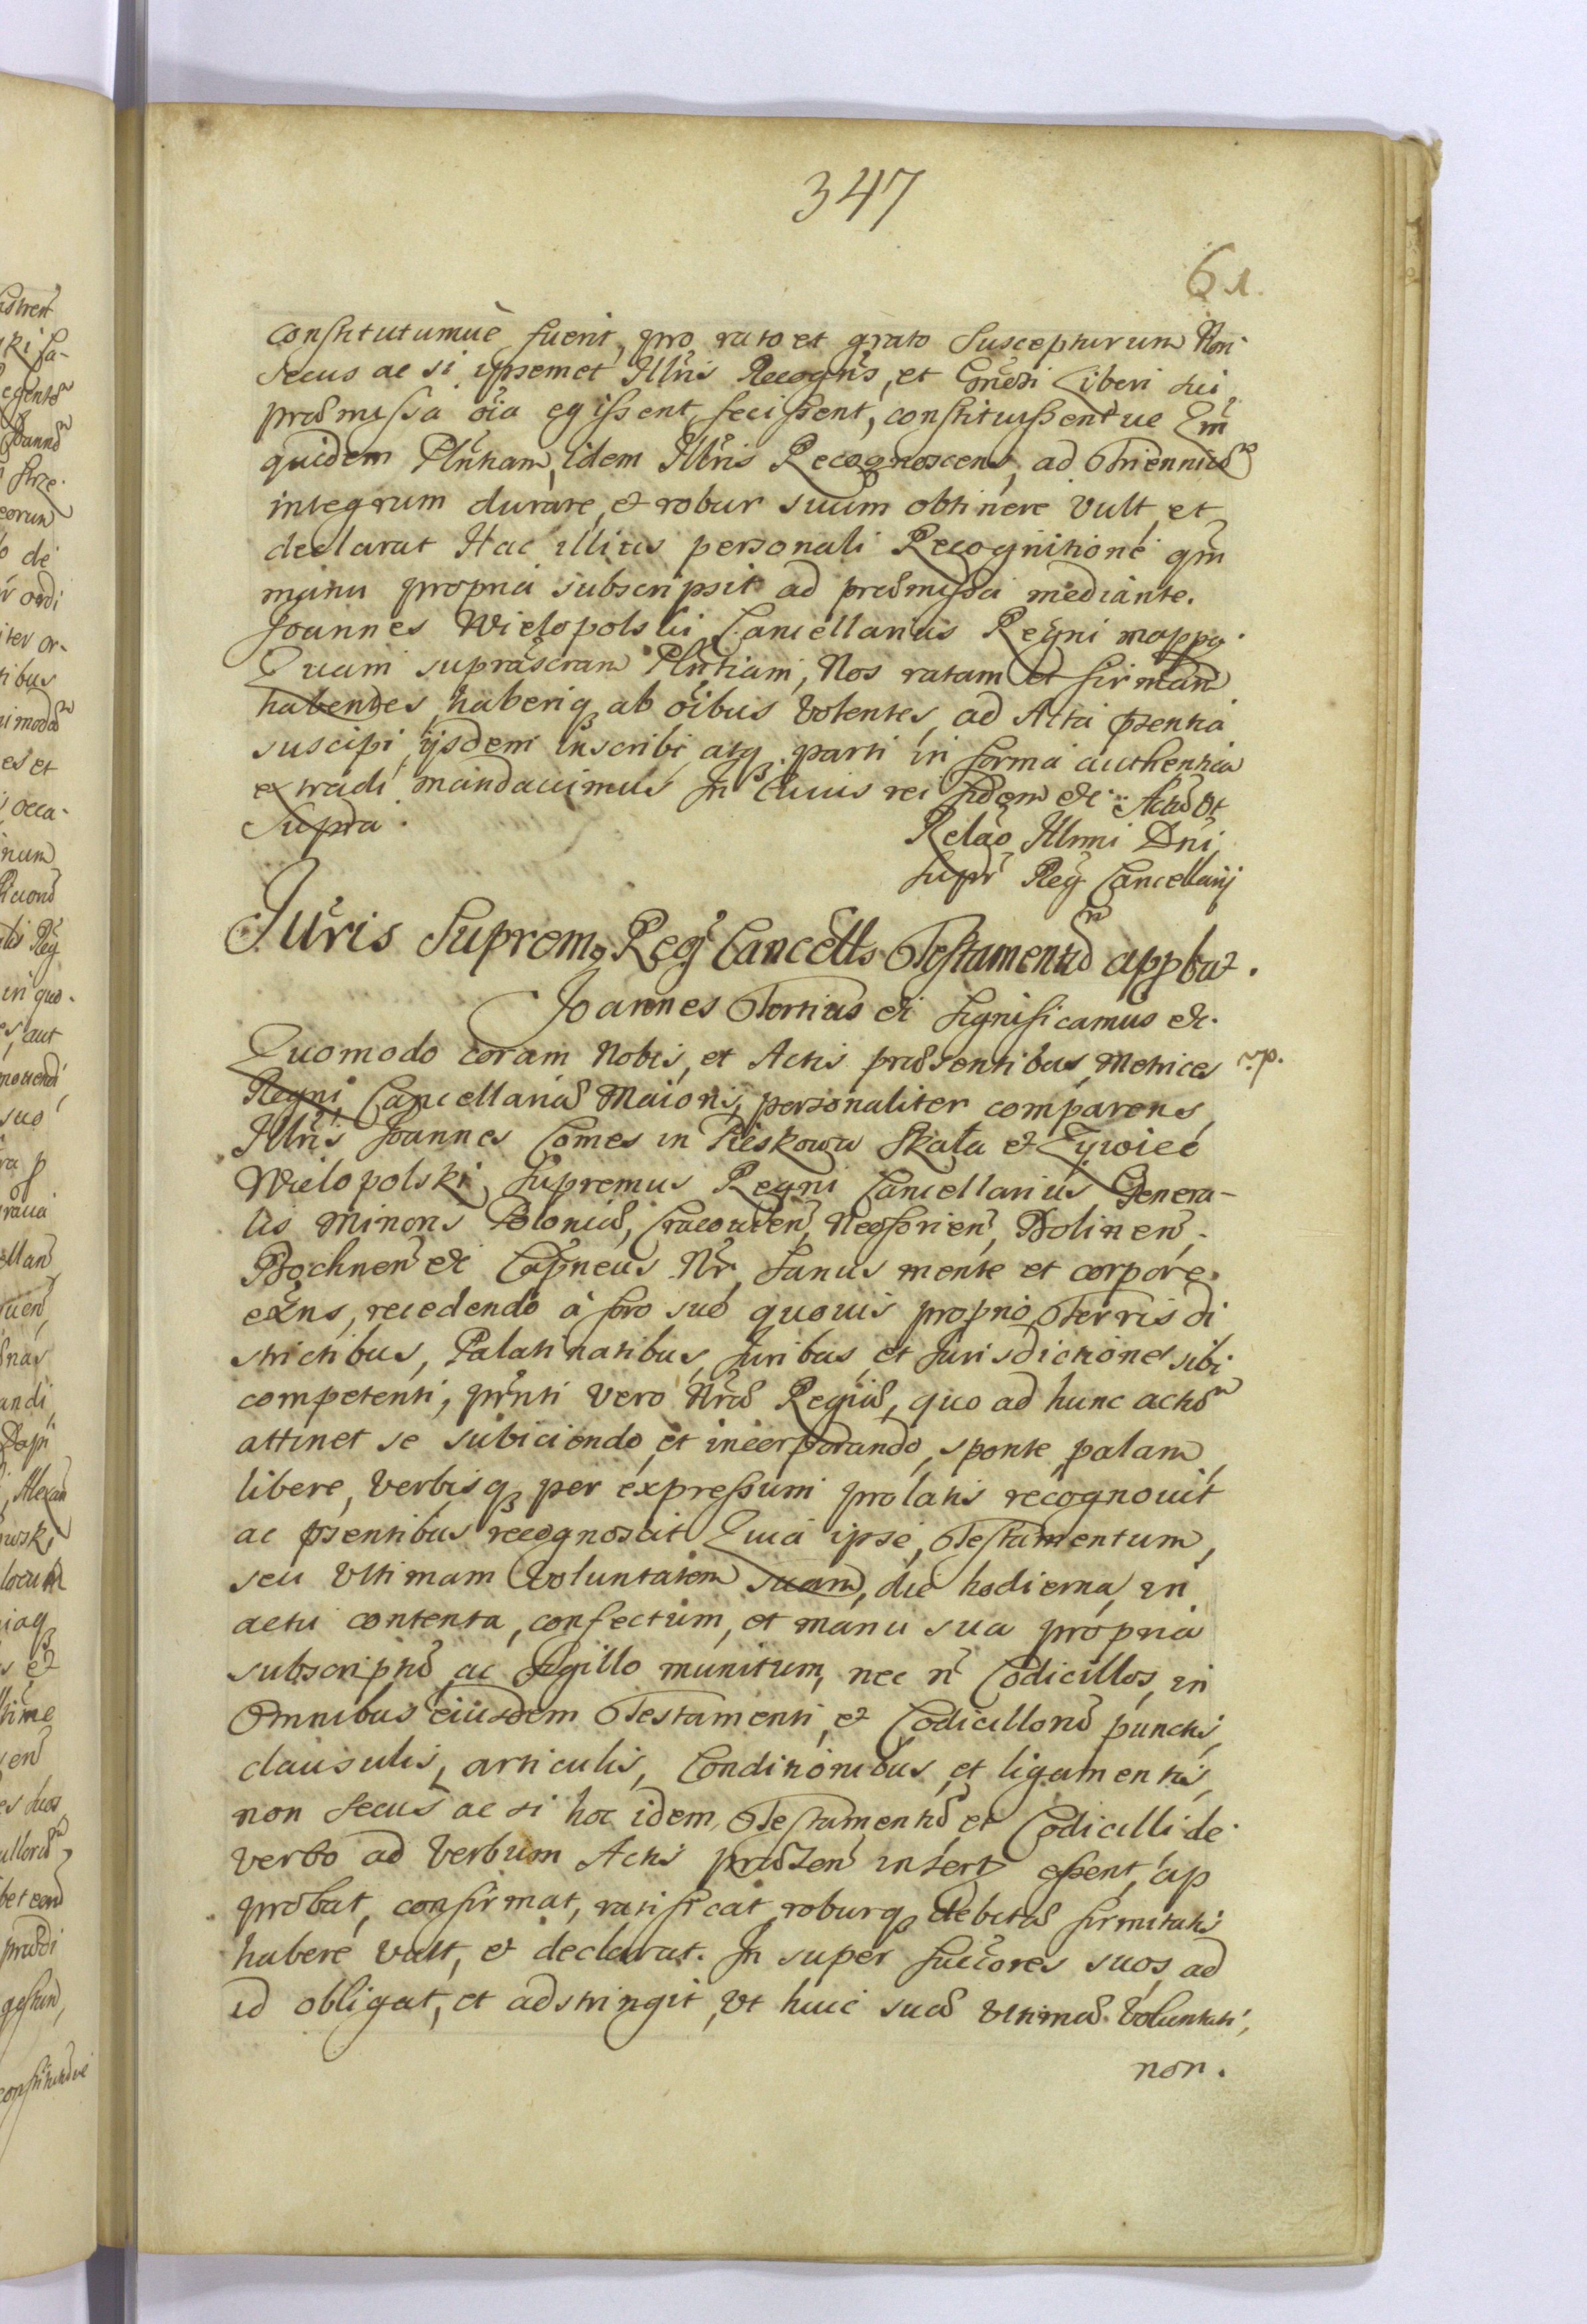 347
61.
constitutumuè fuerit, pro rato et grato suscepturum Non
secus ac si ipsemet Illris Recogns, et Liberi sui,
præmissa oia egissent, fecissent, constituissentue
quidem Plntiam, idem Illris Recognoscens, ad Triennium
integrum durare, et robur suum obtinere vult, et
declarat Hac illius personali Recognitione qm
manu propria subscripsit ad præmissa mediante.
Joannes Wielopolski Cancellarius Regni mappa.
Quam suprascram Plntiam, Nos ratam et firmam
habentes, haberiq ab oibus Volentes, ad Acta pntia
suscipi, ijsdem inscribi atq parti in forma authentica
extradi mandauimus In Cuius rei fidem etc. Actũ Ut
Supra.
Relao Illmi Dni
Supr Reg Cancellarij
Illris Suprem, Reg Cancells Testamentum appbat.
Joannes Tertius etc significamus etc.
Quomodo coram Nobis, et Actis præsentibus Metrices
Regni Cancellariæ Maioris, personaliter comparens
Illris Joannes Comes in Pieskowa Skała et Zywiec
Wielopolski, Supremus Regni Cancellarius Genera-
lis Minoris Poloniæ, Cracouien, Neoforien, Dolinen,
Bochnen etc Capneus Nr, Sanus mente et corpore
exns, recedendo à foro suo quouis proprio Terris di
strictibus, Palatinatibus, Juribus et Jurisdictione sibi
competenti, pnti vero Nræ Regiæ, quo ad hunc actum
attinet se subiciendo, et incorporando, sponte, palam
libere, verbisq per expressum prolatis recognouit
ac psentibus recognoscit Quia ipse, Testamentum,
seu Ultimam Voluntatem suam, die hodierna, in
actu contenta, confectum, et manu sua propria
subscriptũ, ac sigillo munitum, nec n Codicillos, in
Omnibus eiusdem Testamenti, et Codicillorũ punctis,
clausulis, articulis, Conditionibus, et ligamentis,
non secus ac si hoc idem Testamentũ et Codicilli de
verbo ad verbum Actis præsen inserti essent, ap
probat, confirmat, ratificat, roburq debitæ firmitatis
habere vult, et declarat. In super succores suos ad
id obligat, et adstringit, Ut huic suæ Ultimæ Voluntati,
non.